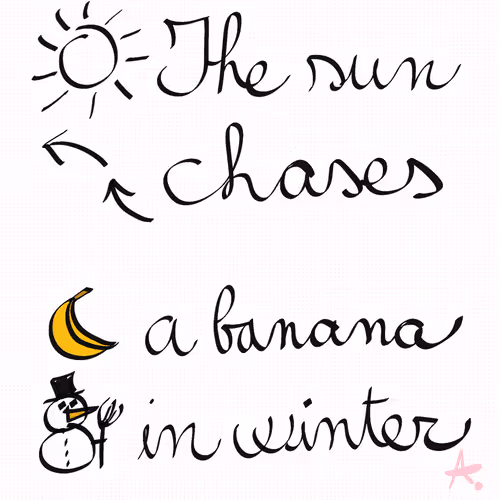 The sun
chases
a banana
in winter
A.